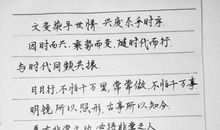 文变染乎世情 兴废系乎时序
因时而兴,乘势而变,随时代而行,
与时代同频共振.
日日行,不怕千万里,常常做,不怕千万事
明镜所以照形,古事所以知今.